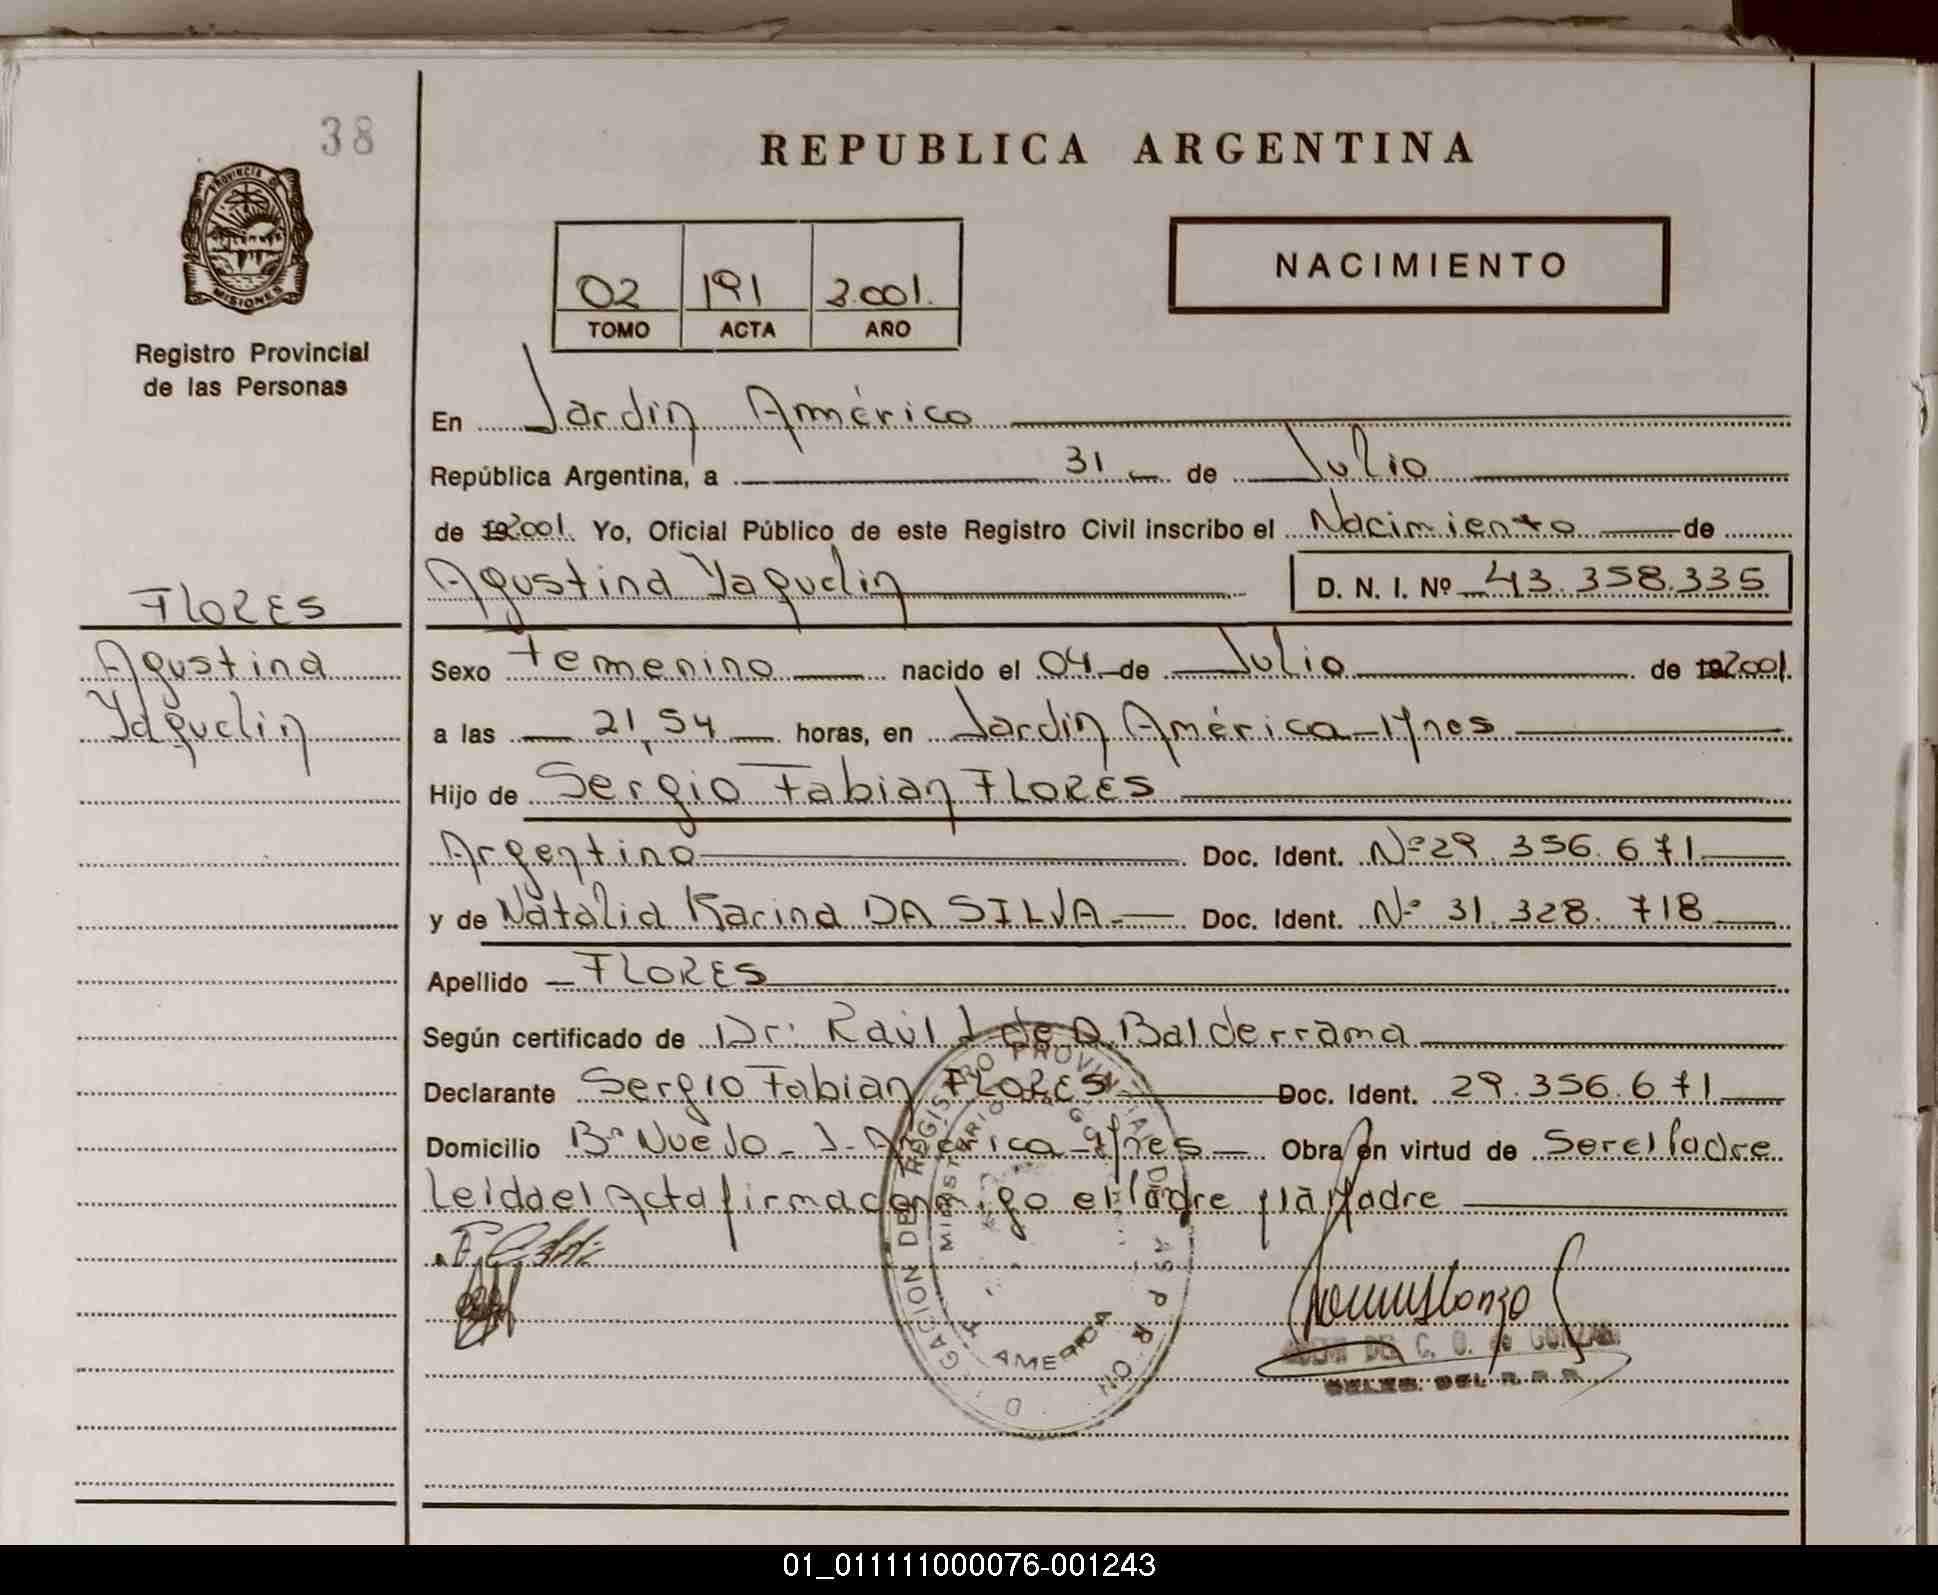 38
REPUBLICA ARGENTINA
PROVINCIA DE
MISIONES
Registro Provincial
de las Personas
02 191 2.001.
TOMO ACTA AÑO
NACIMIENTO
En Jardin América
República Argentina, a 31 de Julio
de 192001. Yo, Oficial Público de este Registro Civil inscribo el Nacimiento de
Agustina Yaquelin D. N. I. Nº 43.358.335
FLORES
Agustina
Yaquelin
Sexo Femenino nacido el 04 de Julio de 192001.
a las 21,54 horas, en Jardin América - Mnes
Hijo de Sergio Fabian FLORES
Argentino Doc. Ident. Nº 29.356.671
y de Natalia Karina DA SILVA Doc. Ident. Nº 31.328.718
Apellido FLORES
Según certificado de Dr. Raúl J. de D. Balderrama
Declarante Sergio Fabian FLORES Doc. Ident. 29.356.671
Domicilio Bº Nuevo - J. América - Mnes Obra en virtud de Ser el Padre
Leida el Acta firma conmigo el Padre y la Madre
DELEGACION DEL REGISTRO PROVINCIAL DE LAS PERSONAS
MINISTERIO DE GOB
J. AMERICA
DEL C. O. de GONZAL
DELEG. DEL R. P. P.
01_011111000076-001243